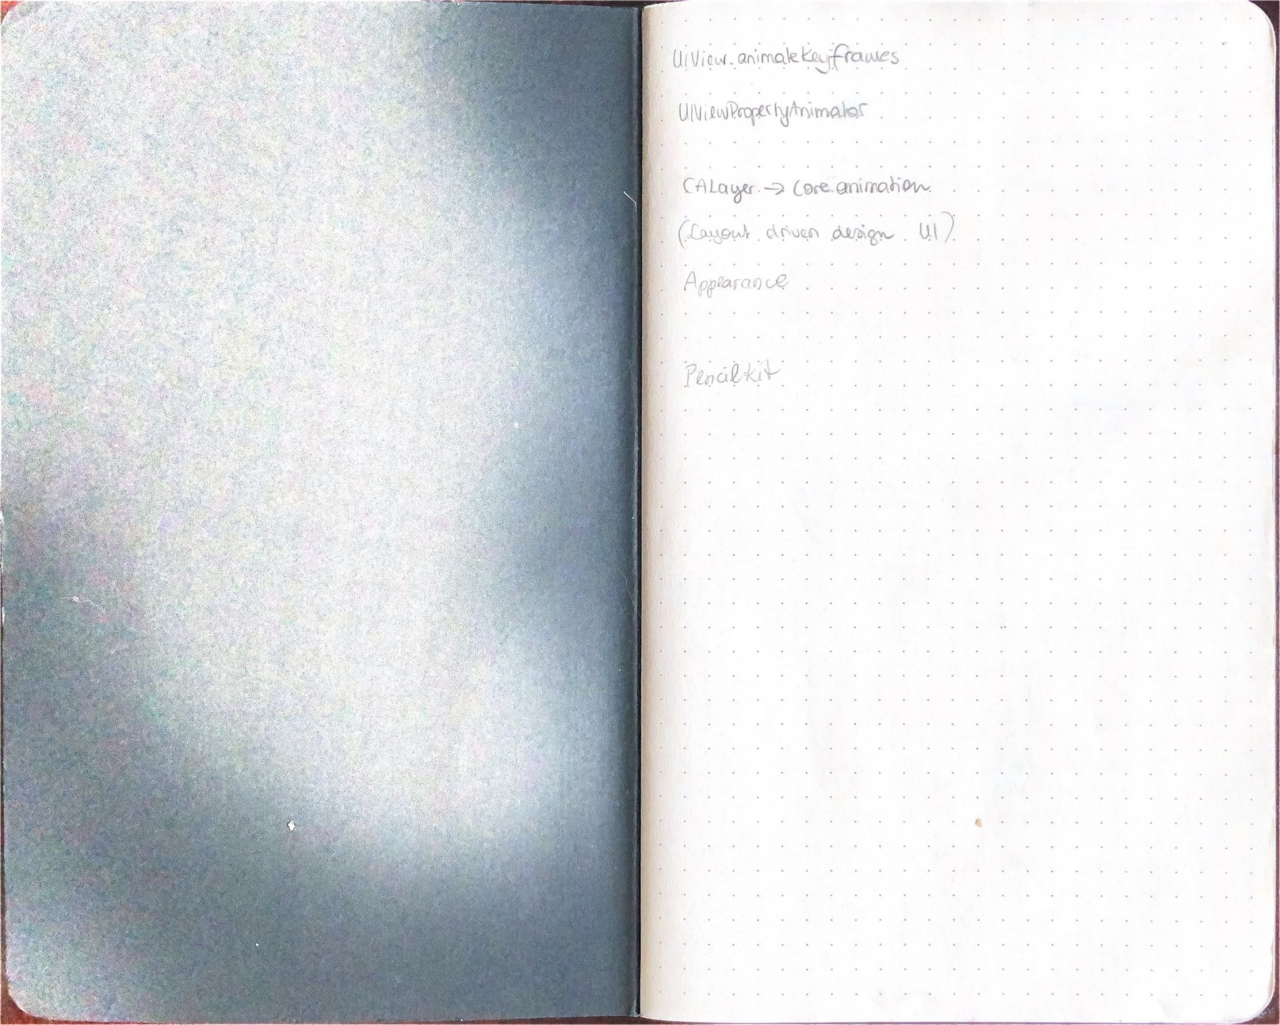 UIView.animateKeyframes
UIViewPropertyAnimator
CALayer → Core animation
(Layout driven design UI)
Appearance
Pencilkit